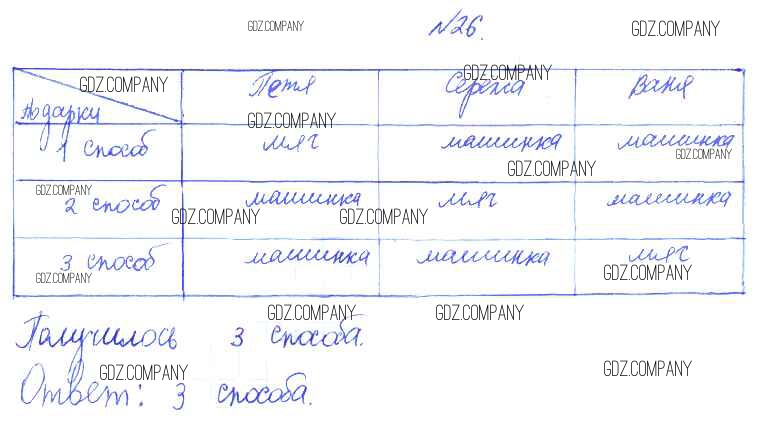 GDZ.COMPANY №26. GDZ.COMPANY
GDZ.COMPANY Петя GDZ.COMPANY Сережа Ваня
Подарки GDZ.COMPANY
1 способ мяч машинка машинка
GDZ.COMPANY GDZ.COMPANY
GDZ.COMPANY
2 способ машинка мяч машинка
GDZ.COMPANY GDZ.COMPANY
3 способ машинка машинка мяч
GDZ.COMPANY GDZ.COMPANY
GDZ.COMPANY GDZ.COMPANY
Получилось 3 способа.
GDZ.COMPANY GDZ.COMPANY
Ответ: 3 способа.